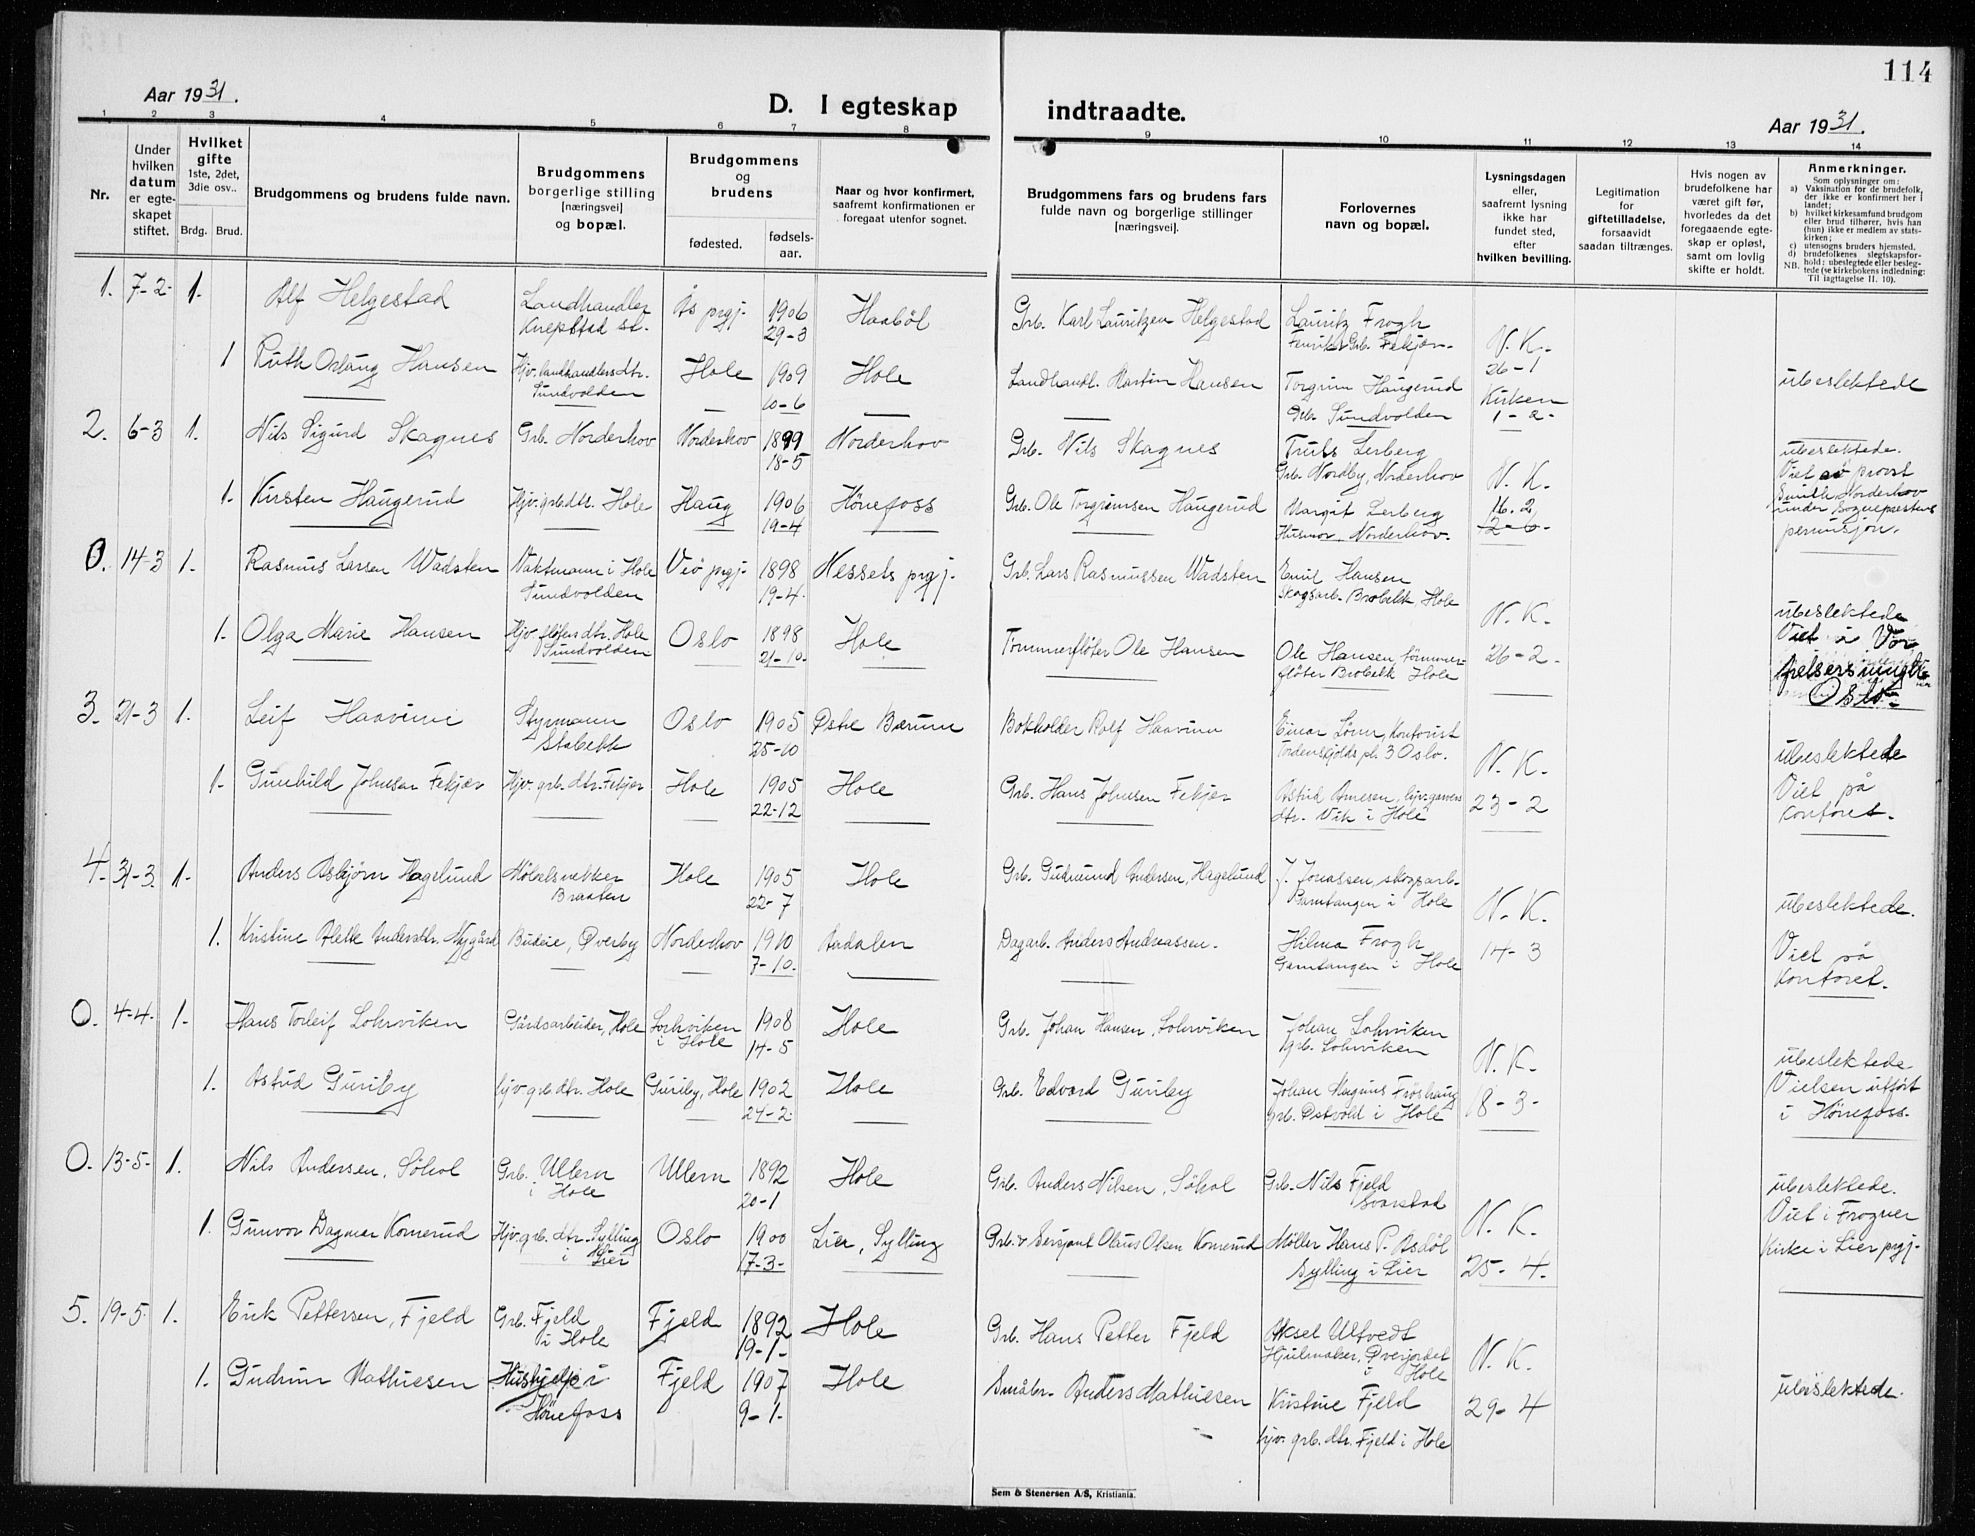 114
Aar 1931.
D. I egteskap indtraadte.
Aar 1931.
1 2 3 4 5 6 7 8 9 10 11 12 13 14
Nr.
Under hvilken datum er egteskapet stiftet.
Hvilket gifte 1ste, 2det, 3die osv..
Brdg. Brud.
Brudgommens og brudens fulde navn.
Brudgommens borgerlige stilling [næringsvei] og bopæl.
Brudgommens og brudens
fødested.
fødselsaar.
Naar og hvor konfirmert, saafremt konfirmationen er foregaat utenfor sognet.
Brudgommens fars og brudens fars fulde navn og borgerlige stillinger [næringsvei].
Forlovernes navn og bopæl.
Lysningsdagen eller, saafremt lysning ikke har fundet sted, efter hvilken bevilling.
Legitimation for giftetilladelse, forsaavidt saadan tiltrænges.
Hvis nogen av brudefolkene har været gift før, hvorledes da det foregaaende egteskap er opløst, samt om lovlig skifte er holdt.
Anmerkninger.
Som oplysninger om:
a) Vaksination for de brudefolk, der ikke er konfirmert her i landet;
b) hvilket kirkesamfund brudgom eller brud tilhører, hvis han (hun) ikke er medlem av statskirken;
c) utensogns bruders hjemsted.
d) brudefolkenes slegtskapsforhold: ubeslegtede eller beslegtede (se kirkebokens indledning: Til iagttagelse II. 10).
NB.
1. 7-2- 1. Alf Helgestad Landhandler Knepstad st. Ås prgj. 1906 29-3 Haabøl Grb. Karl Lauritzen Helgestad Lauritz Frogh Grb. Fekjær- N. K. 26-1
1 Ruth Aslaug Hansen Hjv. landhandlers dtr. Sundvolden Hole 1909 10-6 Hole Landhandl. Martin Hansen Torgrim Haugerud Grb. Sundvolden Kirken 1-2- ubeslektede
2. 6-3 1. Nils Sigurd Skagnes Grb. Norderhov Norderhov 1899 18-5 Norderhov Grb. Nils Skagnes Truls Lerberg Grb. Nordby, Norderhov N. K. ubeslektede. Viet av Provst Smith, Norderhov under Sogneprestens permisjon.
1. Kirsten Haugerud Hjv. grb. dtr. Hole Haug 1906 19-4 Hønefoss Grb. Ole Torgrimsen Haugerud Margit Lerberg Husmor, Norderhov. 16.2
0. 14-3 1. Rasmus Larsen Wadsten Vaktmann i Hole Sundvolden Veø prgj. 1898 19-4 Nessets prgj. Grb. Lars Rasmussen Wadsten Emil Hansen Skogsarb. Brobekk, Hole N. K. ubeslektede Viet i Vår Frelsers menighet Oslo-
1. Olga Marie Hansen Hjv. fløters dtr. Hole Sundvolden Oslo 1898 21-10- Hole Tømmerfløter Ole Hansen Ole Hansen, tømmerfløter Brobekk Hole 26-2-
3. 21-3 1. Leif Haavimo Styrmann Stabekk Oslo 1905 25-10 Østre Bærum Bokholder Rolf Haavimo Einar Lønn, Kontorist Tordenskjolds pl. 3 Oslo. N. K. ubeslektede Viet på Kontoret.
1. Gunhild Johnsen Fekjær Hjv. grb. dtr. Fekjær Hole 1905 22-12 Hole Grb. Hans Johnsen Fekjær Astrid Arnesen, hjv. dtr. Vik i Hole 23-2
4. 31-3. 1. Anders Asbjørn Hagelund Møbelsnekker Braaten Hole 1905 22-7 Hole Grb. Gudmund Andersen, Hagelund J. Jonassen, skogsarb. Gamtangen i Hole N. K. ubeslektede. Viet på Kontoret.
1. Kristine Alette Andersdtr. Nygård Budeie, Øverby Norderhov 1910 7-10. Aadalen Dagarb. Anders Andreassen. Hilma Frogh Gamtangen i Hole 14-3
0. 4-4. 1. Hans Torleif Lohrviken Gårdsarbeider, Hole Lorhviken i Hole 1908 14-5 Hole Grb. Johan Hansen, Lohrviken Johan Lohrviken grb. Lohrviken N. K. ubeslektede Vielsen utført i Hønefoss.
1. Astrid Guriby hjv. grb. dtr. Hole Guriby, Hole 1902 24-2. Hole Grb. Edvard Guriby Johan Magnus Frøshaug grb. Østvold i Hole 18-3-
0. 13-5- 1. Nils Andersen, Søhol Grb. Ullern i Hole Ullern 1892 20-1 Hole Grb. Anders Nilsen, Søhol Grb. Nils Fjeld Svarstad N. K. ubeslektede. Viet i Frogner Kirke i Lier prgj.
1. Gunvor Dagmar Komerud Hjv. grb. dtr. Sylling i Lier Oslo 1900 17-3- Lier, Sylling Grb. & Sersjant Olaus Olsen Komerud Møller Hans P. Asdøl Sylling i Lier 25-4.
5. 19-5. 1. Erik Pettersen, Fjeld Grb. Fjeld i Hole Fjeld 1892 19-1- Hole Grb. Hans Petter Fjeld Aksel Ultvedt Hjulmaker, Øverjordet i Hole N. K.
1. Gudrun Mathiesen Hushjelp i Hønefoss Fjeld 1907 9-1. Hole Småbr. Anders Mathiesen Kristine Fjeld hjv. grb. dtr. Fjeld i Hole 29-4 ubeslektede.
Sem & Stenersen A/S, Kristiania.